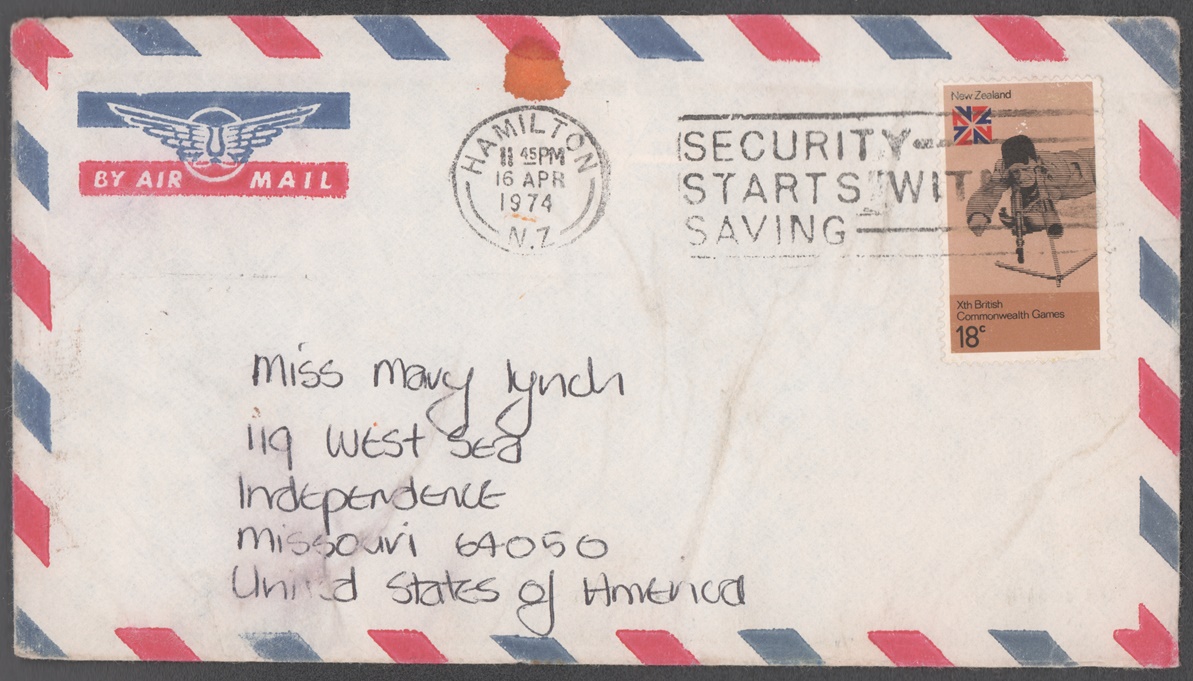 BY AIR MAIL
HAMILTON
11 45PM
16 APR
1974
N.Z
SECURITY
STARTS WITH
SAVING
New Zealand
Xth British
Commonwealth Games
18c
Miss Mary Lynch
119 West Sea
Independence
Missouri 64050
United States of America